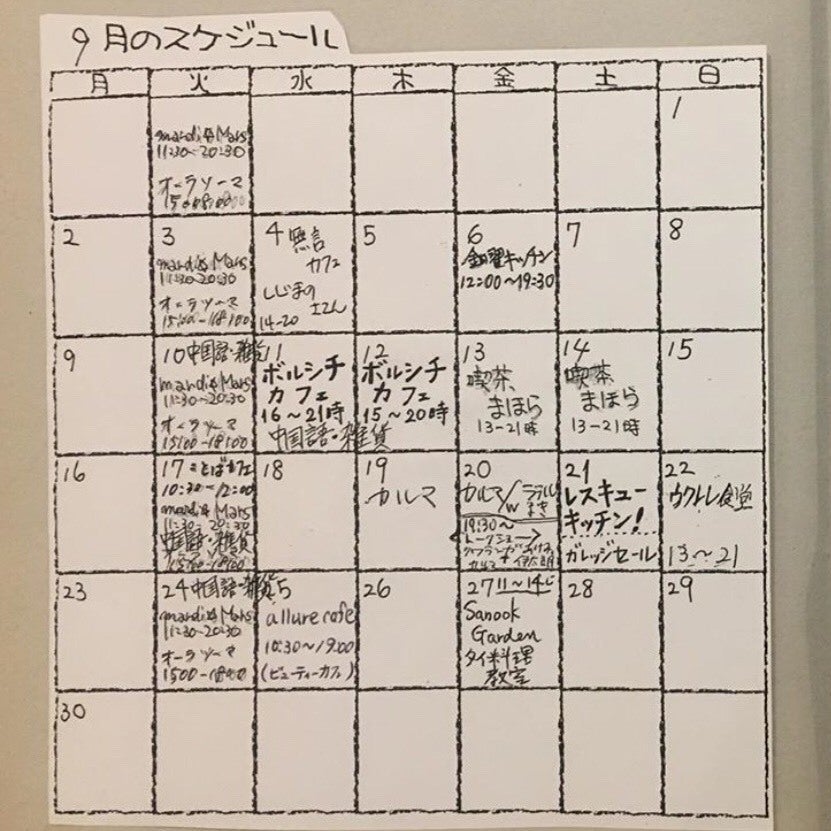 9月のスケジュール
月 火 水 木 金 土 日
mardi & Mars
11:30-20:30
オーラソーマ
1
2
3
mardi & Mars
11:30-20:30
オーラソーマ
15:00-18:00
4 無言
カフェ
しじまの
14-20
5
6
金曜キッチン
12:00〜19:30
7
8
9
10 中国語・雑貨
mardi & Mars
11:30-20:30
オーラソーマ
15:00-18:00
11
ボルシチ
カフェ
16〜21時
中国語・雑貨
12
ボルシチ
カフェ
15〜20時
13
喫茶
まほら
13-21時
14
喫茶
まほら
13-21時
15
16
17 ことばカフェ
10:30-12:00
mardi & Mars
11:30-20:30
中国語・雑貨
15:00-18:00
18
19
カルマ
20
カルマ/w
19:30〜
トークショー
21
レスキュー
キッチン!
ガレッジセール
22
ウクレレ食堂
13〜21
23
24 中国語・雑貨
mardi & Mars
11:30-20:30
オーラソーマ
1500-18:00
5
allure cafe
10:30〜19:00
(ビューティーカフェ)
26
27 11〜14じ
Sanook
Garden
タイ料理
教室
28
29
30